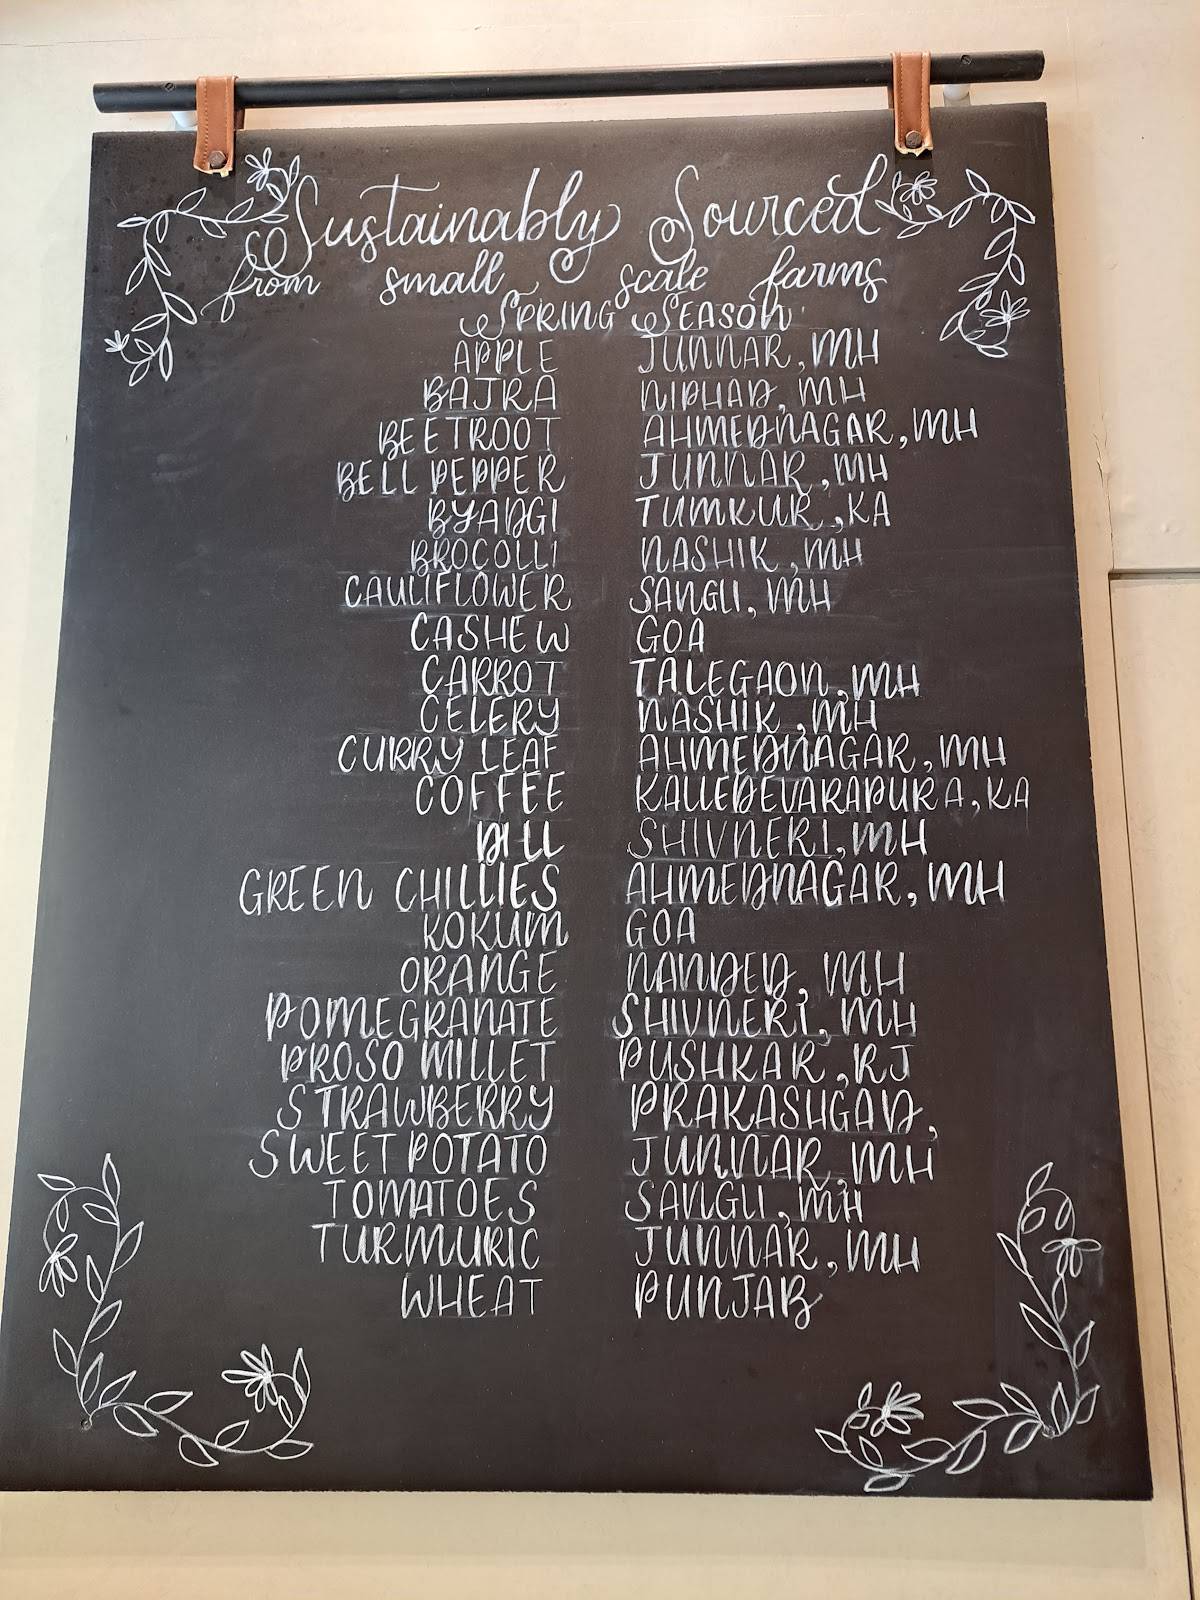 Sustainably Sourced
from small scale farms
SPRING SEASON
APPLE JUNNAR, MH
BAJRA NIPHAD, MH
BEETROOT AHMEDNAGAR, MH
BELL PEPPER JUNNAR, MH
BYADGI TUMKUR, KA
BROCOLLI NASHIK, MH
CAULIFLOWER SANGLI, MH
CASHEW GOA
CARROT TALEGAON, MH
CELERY NASHIK, MH
CURRY LEAF AHMEDNAGAR, MH
COFFEE KALLEDEVARAPURA, KA
DILL SHIVNERI, MH
GREEN CHILLIES AHMEDNAGAR, MH
KOKUM GOA
ORANGE NANDED, MH
POMEGRANATE SHIVNERI, MH
PROSO MILLET PUSHKAR, RJ
STRAWBERRY PRAKASHGAD,
SWEET POTATO JUNNAR, MH
TOMATOES SANGLI, MH
TURMURIC JUNNAR, MH
WHEAT PUNJAB